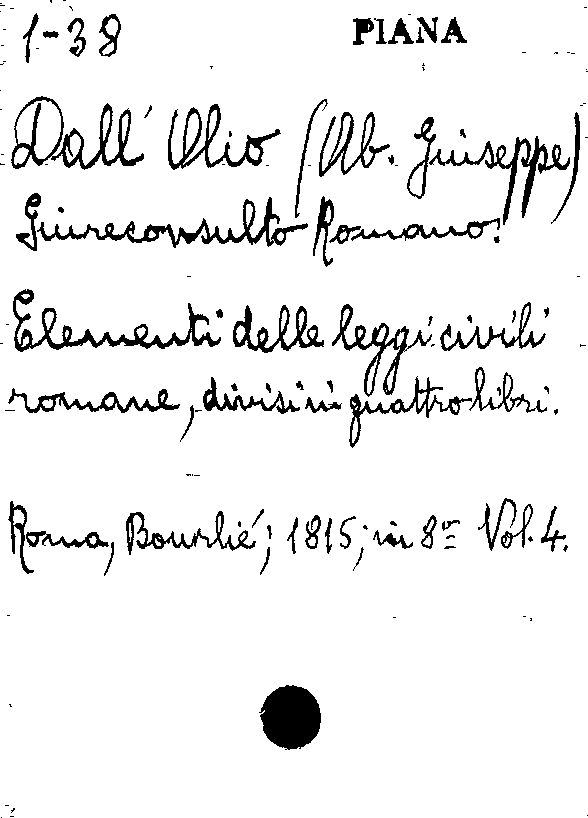 1-38 PIANA
Dall' Olio (Ab. Giuseppe)
Giureconsulto Romano.
Elementi delle leggi civili
romane, divisi in quattro libri.
Roma, Bourlié; 1815; in 8° Vol. 4.